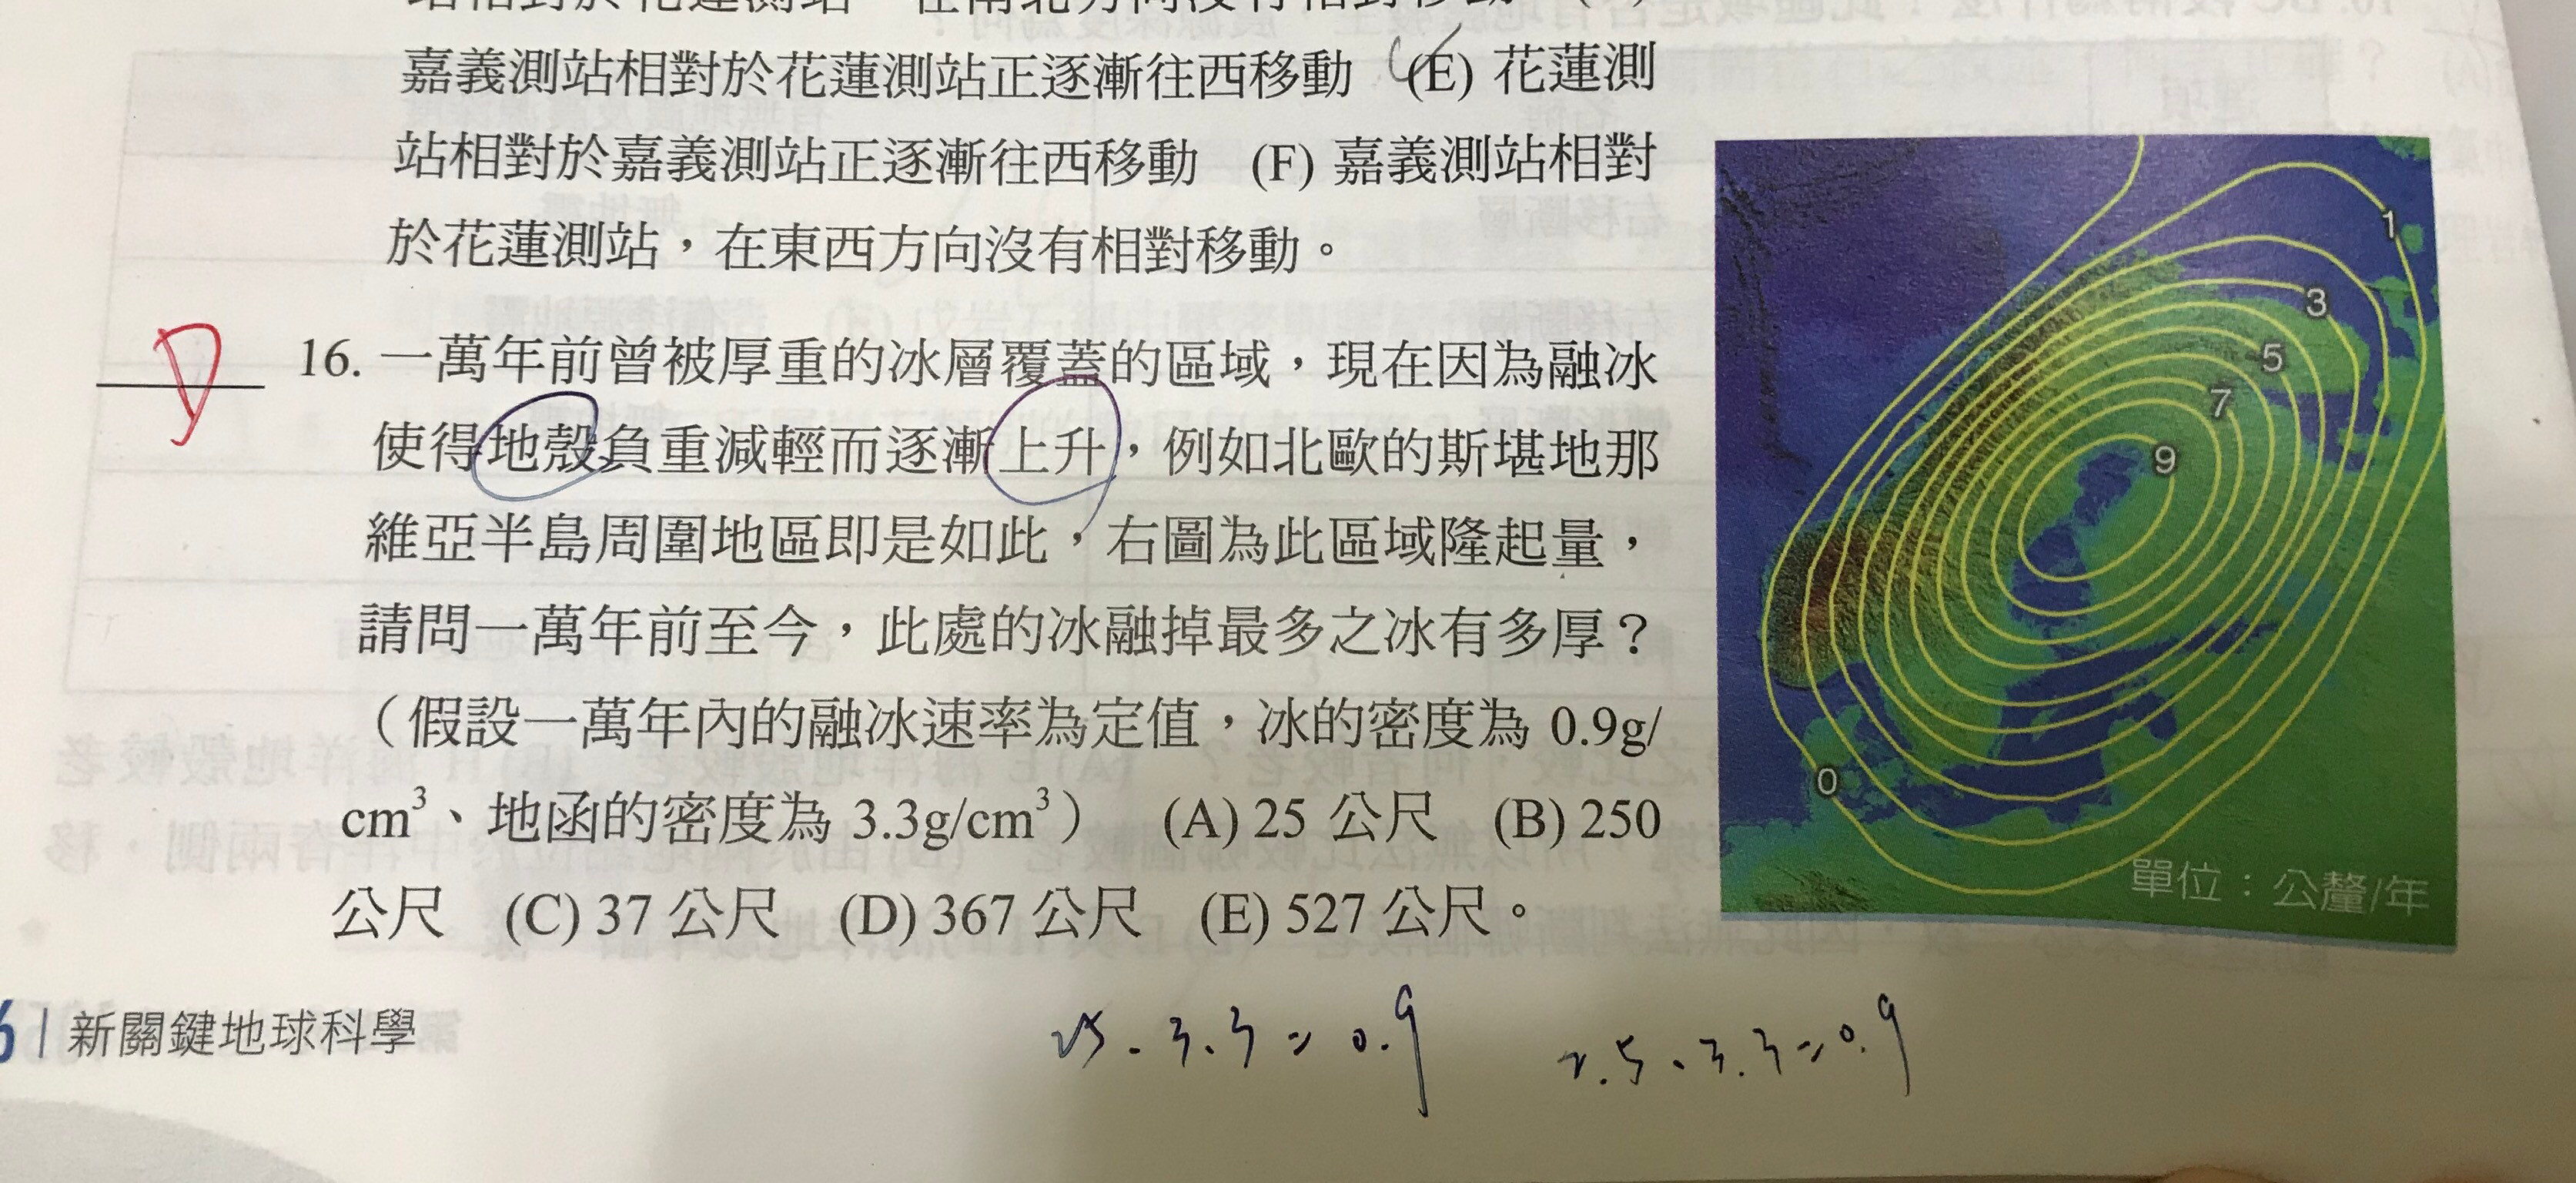 嘉義測站相對於花蓮測站正逐漸往西移動 (E) 花蓮測
站相對於嘉義測站正逐漸往西移動 (F) 嘉義測站相對
於花蓮測站，在東西方向沒有相對移動。
D
16. 一萬年前曾被厚重的冰層覆蓋的區域，現在因為融冰
使得地殼負重減輕而逐漸上升，例如北歐的斯堪地那
維亞半島周圍地區即是如此，右圖為此區域隆起量，
請問一萬年前至今，此處的冰融掉最多之冰有多厚？
（假設一萬年內的融冰速率為定值，冰的密度為 0.9g/
cm³、地函的密度為 3.3g/cm³） (A) 25 公尺 (B) 250
公尺 (C) 37 公尺 (D) 367 公尺 (E) 527 公尺。
1
3
5
7
9
0
單位：公釐/年
6 | 新關鍵地球科學
25 . 3.3 = 0.9
2.5 . 3.3 = 0.9